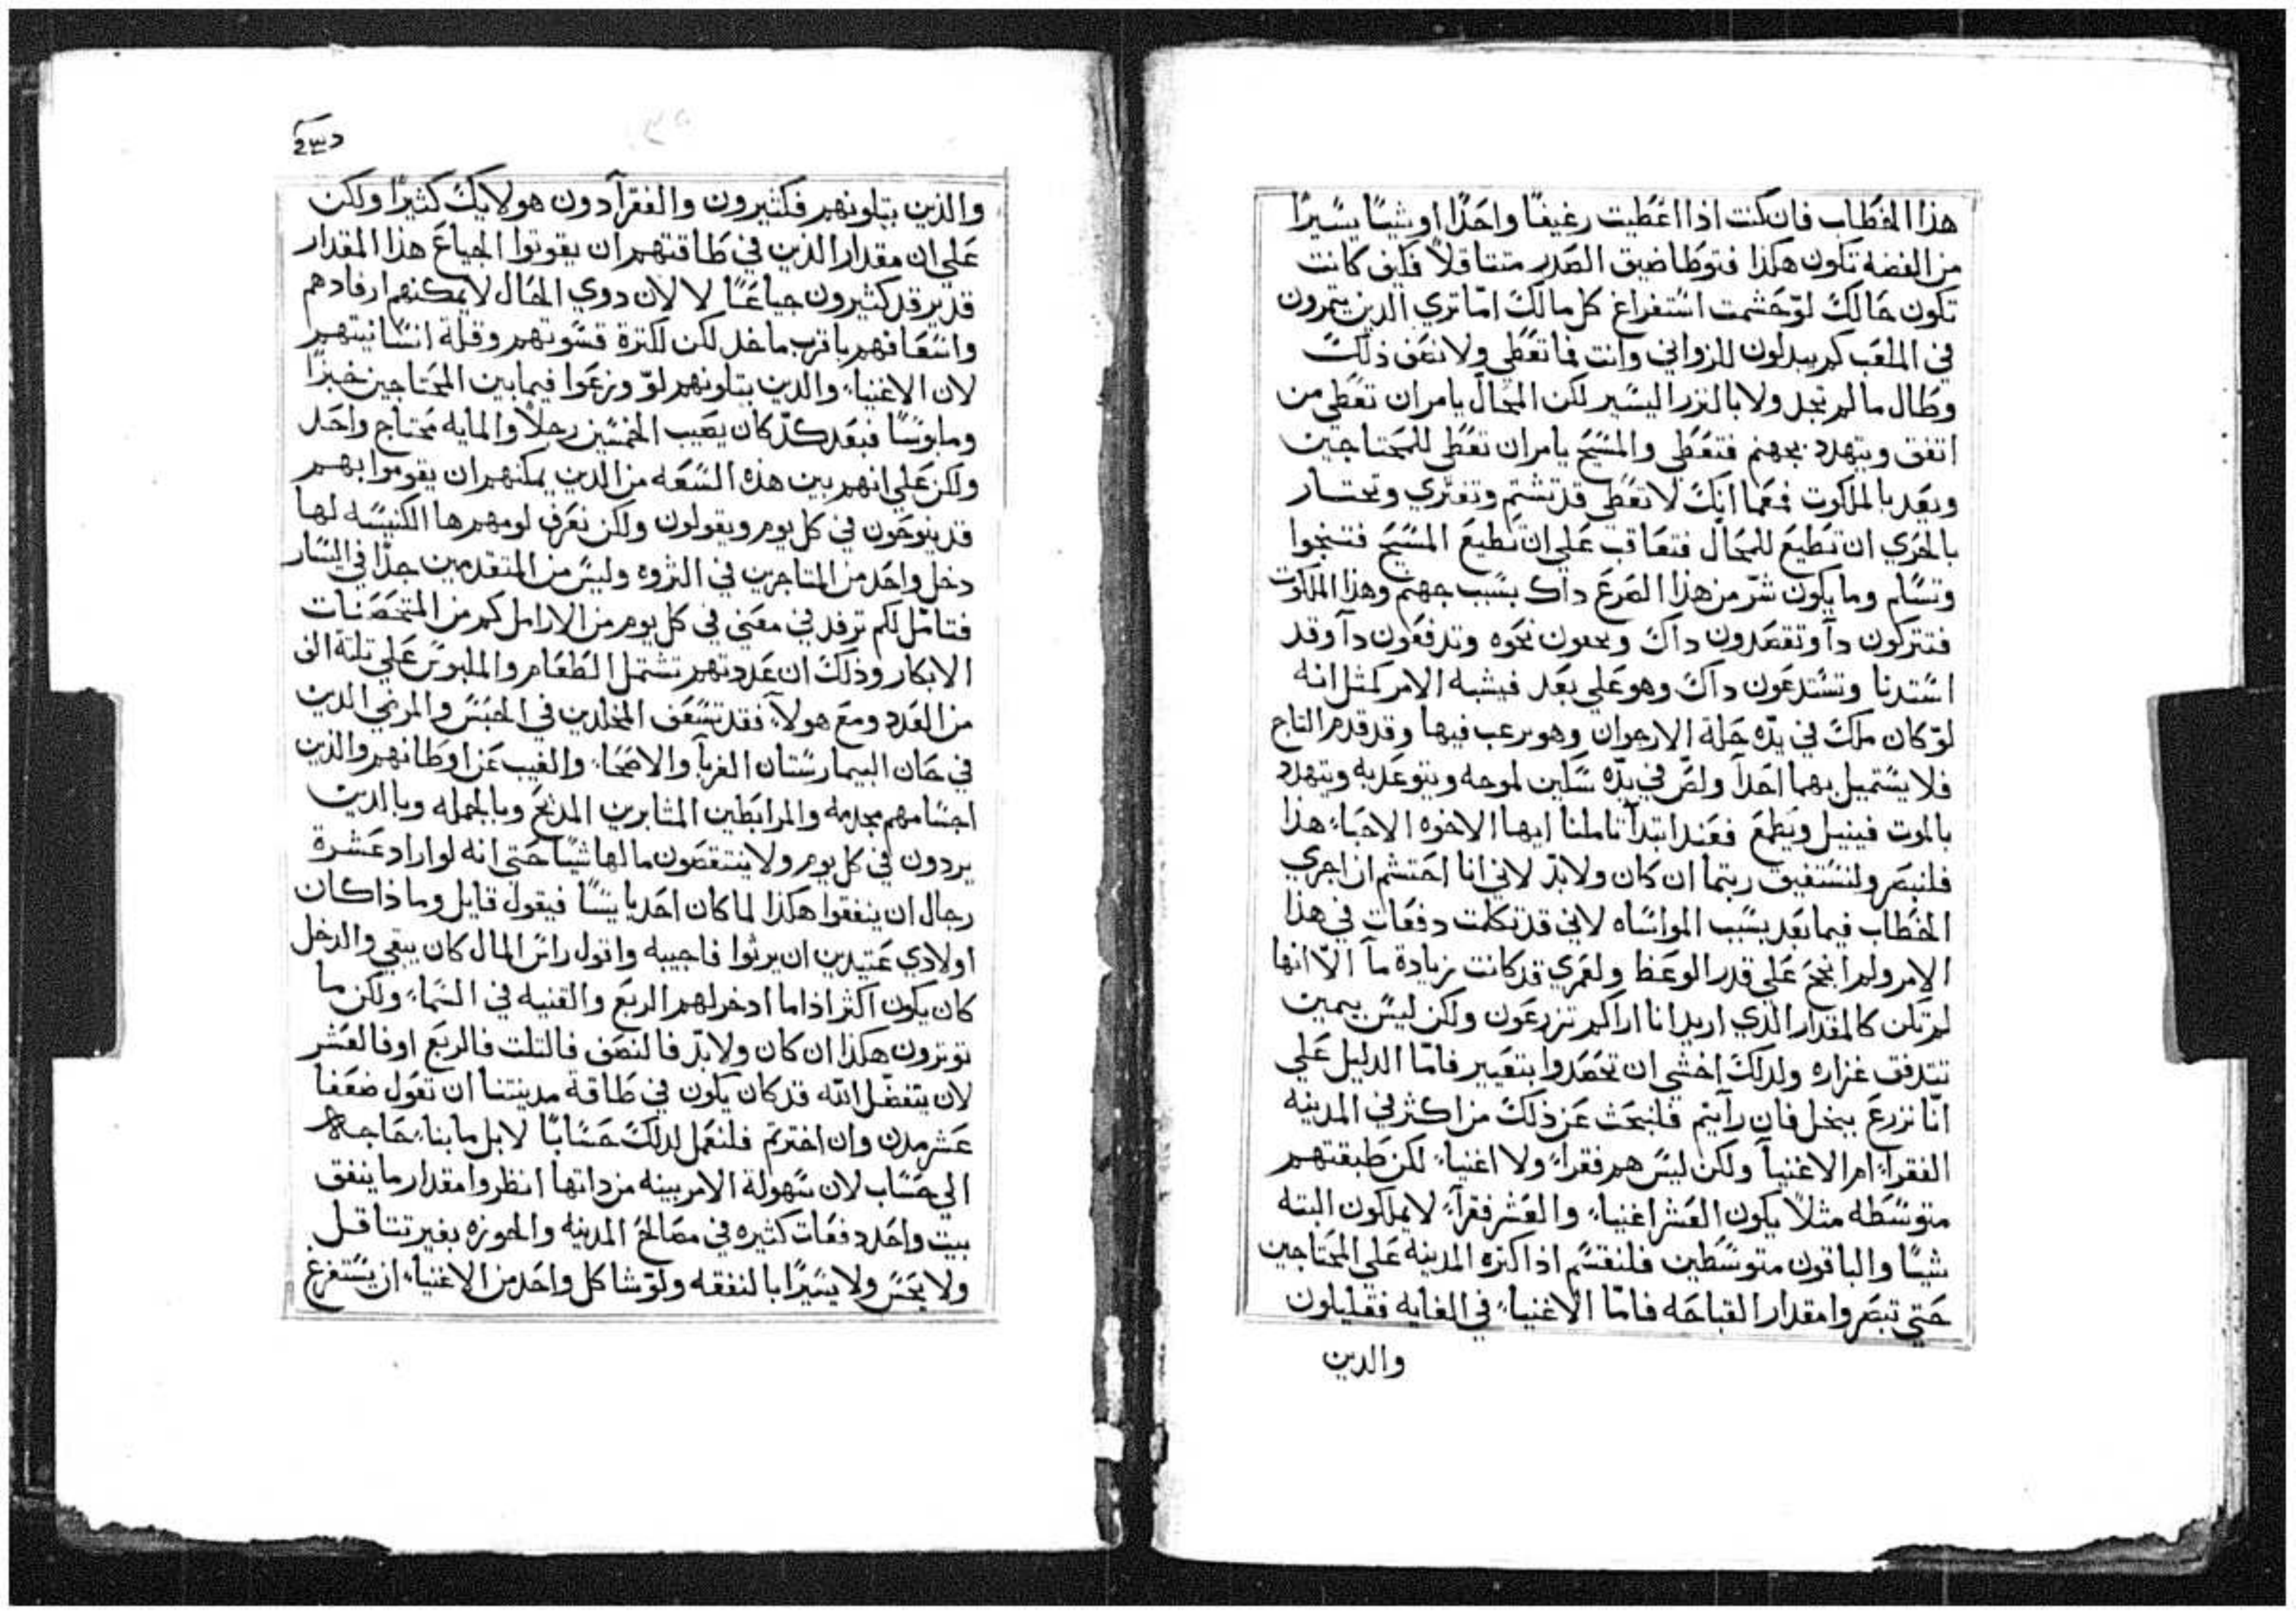 هذا الخطاب فان كنت اذا اعطيت رغيفًا واحدًا او شيًا يسيرًا
من الفضه تكون هكذا فتوطا ضيق الصدر متثاقلاً فكيف كانت
تكون حالك لو حشمت استفراغ كل مالك اما تري الدين يتمرون
في الملعب كم يبدلون للزواني وانت فما تعطي ولا نصف ذلك
وطال ما لم تجد ولا بالنزر اليسير لكن المحال يامر ان تعطي من
اتفق ويتهدد بجهنم فتعطي والمسيح يامر ان تعطي للمحتاجين
ويعد بالملكوت فمما انك لا تعطي قد تشتم وتفتري وتختار
بالحري ان تطيع للمحال فتعاقب علي ان تطيع المسيح فتنجوا
وتسلم وما يكون شر من هذا الصرع داك بسبب جهنم وهذا الملكوت
فتتركون دا وتقصدون داك نحوه وتدفعون دا وقد
استدنا وتستدعون داك وهو علي بعد فيشبه الامر كمثل انه
لو كان ملك في يده حلة الارجوان وهو يرعب فيها وقد قدم التاج
فلا يستميل بهما احدًا ولص في يده سكين لموحه ويتوعد به ويتهدد
بالموت فينيل ويطمع فعند ابتدا تاملنا ايها الاخوه الاحباء هذا
فلنبصر ولنستفيق ربتما ان كان ولابد لاني انا احتشم ان اجري
الخطاب فيما بعد بسبب المواساه لاني قد تكلمت دفعات في هذا
الامر ولم انجح علي قدر الوعظ ولعمري قد كانت زيادة ما الا انها
لم تكن كالمقدار الذي اريد انا اراكم تزرعون ولكن ليس بيمين
تتدفق غزاره ولدلك اخشي ان تحصدوا بتغيير فاما الدليل علي
انا نزرع ببخل فان رآيتم فلنبحث عن ذلك من اكثر في المدينه
الفقراء ام الاغنيآ ولكن ليس هم فقراء ولا اغنياء لكن طبقتهم
متوسطه مثلاً يكون العشر اغنياء والعشر فقرآء لا يملكون البته
شيًا والباقون متوسطين فلنقسم ادا كتره المدينه علي المحتاجين
حتي تبصروا مقدار القباحه فاما الاغنياء في الغايه فقليلون
والدين
والذين يتلونهم فكثيرون والفقرآ دون هولايك كثيرًا ولكن
علي ان مقدار الذين في طاقتهم ان يقوتوا الجياع هذا المقدار
قد يرقد كثيرون جياعًا لا لان دوي الحال لا يمكنهم ارفادهم
واسعافهم باقرب ماخد لكن لكترة قسوتهم وقلة انسانيتهم
لان الاغنياء والدين يتلونهم لو وزعوا فيما بين المحتاجين خبزًا
وملبوسًا فبعد كد كان يصيب الخمسين رجلاً والمايه محتاج واحد
ولكن علي انهم بين هذه السعه من الدين يمكنهم ان يقوموا بهم
قد ينوحون في كل يوم ويقولون ولكن نعرف لومهم ها الكنيسه لها
دخل واحد من المتاجرين في الثروه وليس من المتقدمين جدًا في اليسار
فتامل لكم ترفد في معني في كل يوم من الارامل كم من المتحصنات
الابكار وذلك ان عددتهم تشتمل الطعام والملبوس علي تلتة الف
من العدد ومع هولآء فقد تسعف المخلدين في الحبس والمرضي الدين
في خان البيمارستان الغربآ والاصحاء والغيب عن اوطانهم والذين
اجسامهم مجدمه والمرابطين المثابرين المدبح وبالجمله وبالدين
يردون في كل يوم ولا ينتقصون مالها شيًا حتي انه لو اراد عشرة
رجال ان ينفقوا هكذا لما كان احد يايسًا فيقول قايل وماذا كان
اولادي عتيدين ان يرثوا فاجيبه واقول راس المال كان يبقي والدخل
كان يكون اكثر اذا ما ادخر لهم الريع والقنيه في السماء ولكن ما
توترون هكذا ان كان ولابد فالنصف فالتلت فالربع او فالعشر
لان بتفضل الله قد كان يكون في طاقة مدينتنا ان تعول ضعفا
عشر مدن وان اخترتم فلنعمل لدلك حسابًا لا بل ما بناء حاجه
الي حساب لان سهولة الامر بينه من داتها انظروا مقدار ما ينفق
بيت واحد دفعات كثيره في مصالح المدينه والحوزه بغير تتاقل
ولا يحس ولا يسيرًا بالنفقه ولو شا كل واحد من الاغنياء ان يستفرغ